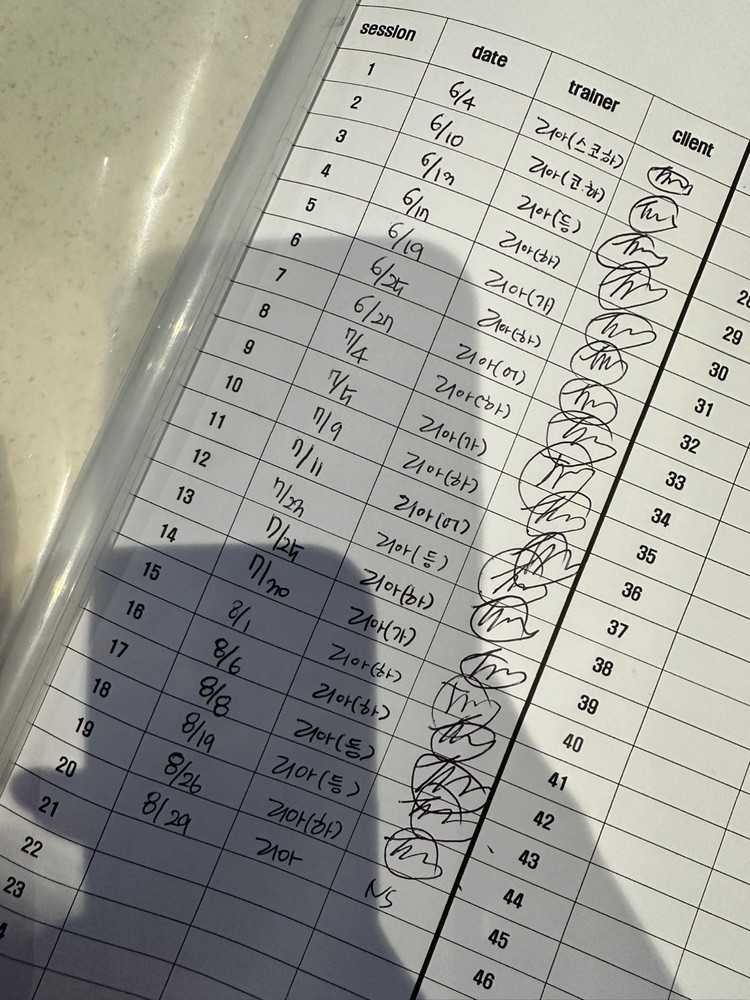 session date trainer client
1 6/4 리아(스코하)
2 6/10 리아(코.하)
3 6/13 리아(등)
4 6/17 리아(하)
5 6/19 리아(가)
6 6/25 리아(하)
7 6/27 리아(어)
8 7/4 리아(하)
9 7/5 리아(가)
10 7/9 리아(하)
11 7/11 리아(어)
12 7/23 리아(등)
13 7/25 리아(하)
14 7/30 리아(가)
15 8/1 리아(하)
16 8/6 리아(하)
17 8/8 리아(등)
18 8/19 리아(등)
19 8/26 리아(하)
20 8/29 리아 NS
21
22
23
29
30
31
32
33
34
35
36
37
38
39
40
41
42
43
44
45
46